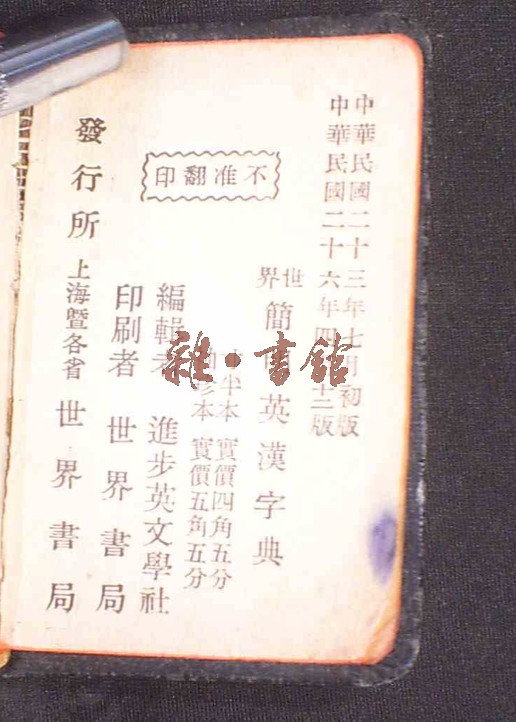 中華民國二十三年七月初版
中華民國二十六年四月十二版
不准翻印
世界簡明英漢字典
半本 實價四角五分
本 實價五角五分
編輯者 進步英文學社
印刷者 世界書局
發行所 上海暨各省 世界書局
雜·書館